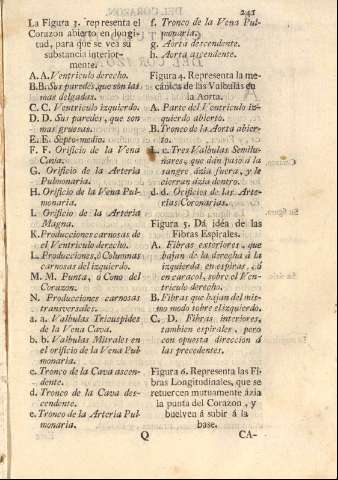 241
La Figura 3. representa el
Corazon abierto en longi-
tud, para que se vea su
substancia interior-
mente.
A. A. Ventriculo derecho.
B.B. Sus paredes, que son las
mas delgadas.
C. C. Ventriculo izquierdo.
D. D. Sus paredes, que son
mas gruesas.
E. E. Septo-medio.
F. F. Orificio de la Vena
Cava.
G. Orificio de la Arteria
Pulmonaria.
H. Orificio de la Vena Pul-
monaria.
I. Orificio de la Arteria
Magna.
K. Producciones carnosas de
el Ventriculo derecho.
L. Producciones, ò Columnas
carnosas del izquierdo.
M. M. Punta, ò Cono del
Corazon.
N. Producciones carnosas
transversales.
a. a. Valbulas Tricuspides
de la Vena Cava.
b. b. Valbulas Mitrales en
el orificio de la Vena Pul
monaria.
c. Tronco de la Vena ascen-
dente.
d. Tronco de la Cava des-
cendente.
e. Tronco de la Arteria Pul-
monaria.
f. Tronco de la Vena Pul-
monaria.
g. Aorta descendente.
h. Aorta ascendente.
Figura 4. Representa la me-
cánica de las Valbulas en
la Aorta.
A. Parte del Ventriculo iz-
quierdo abierto.
B. Tronco de la Aorta abier-
to.
c. c. Tres Valbulas Semilu-
nares, que dàn paso à la
sangre ázia fuera, y le
cierran ázia dentro.
d. d. Orificios de las Arte-
rias Coronarias.
Figura 5. Dá idéa de las
Fibras Espirales.
A. Fibras exteriores, que
bajan de la derecha á la
izquierda en espiras, ò
en caracol, sobre el Ven-
triculo derecho.
B. Fibras que bajan del mis-
mo modo sobre el izquierdo.
C. D. Fibras interiores,
tambien espirales, pero
con opuesta direccion à
las precedentes.
Figura 6. Representa las Fi
bras Longitudinales, que se
retuercen mutuamente ázia
la punta del Corazon, y
buelven á subir á la
base.
Q
CA-